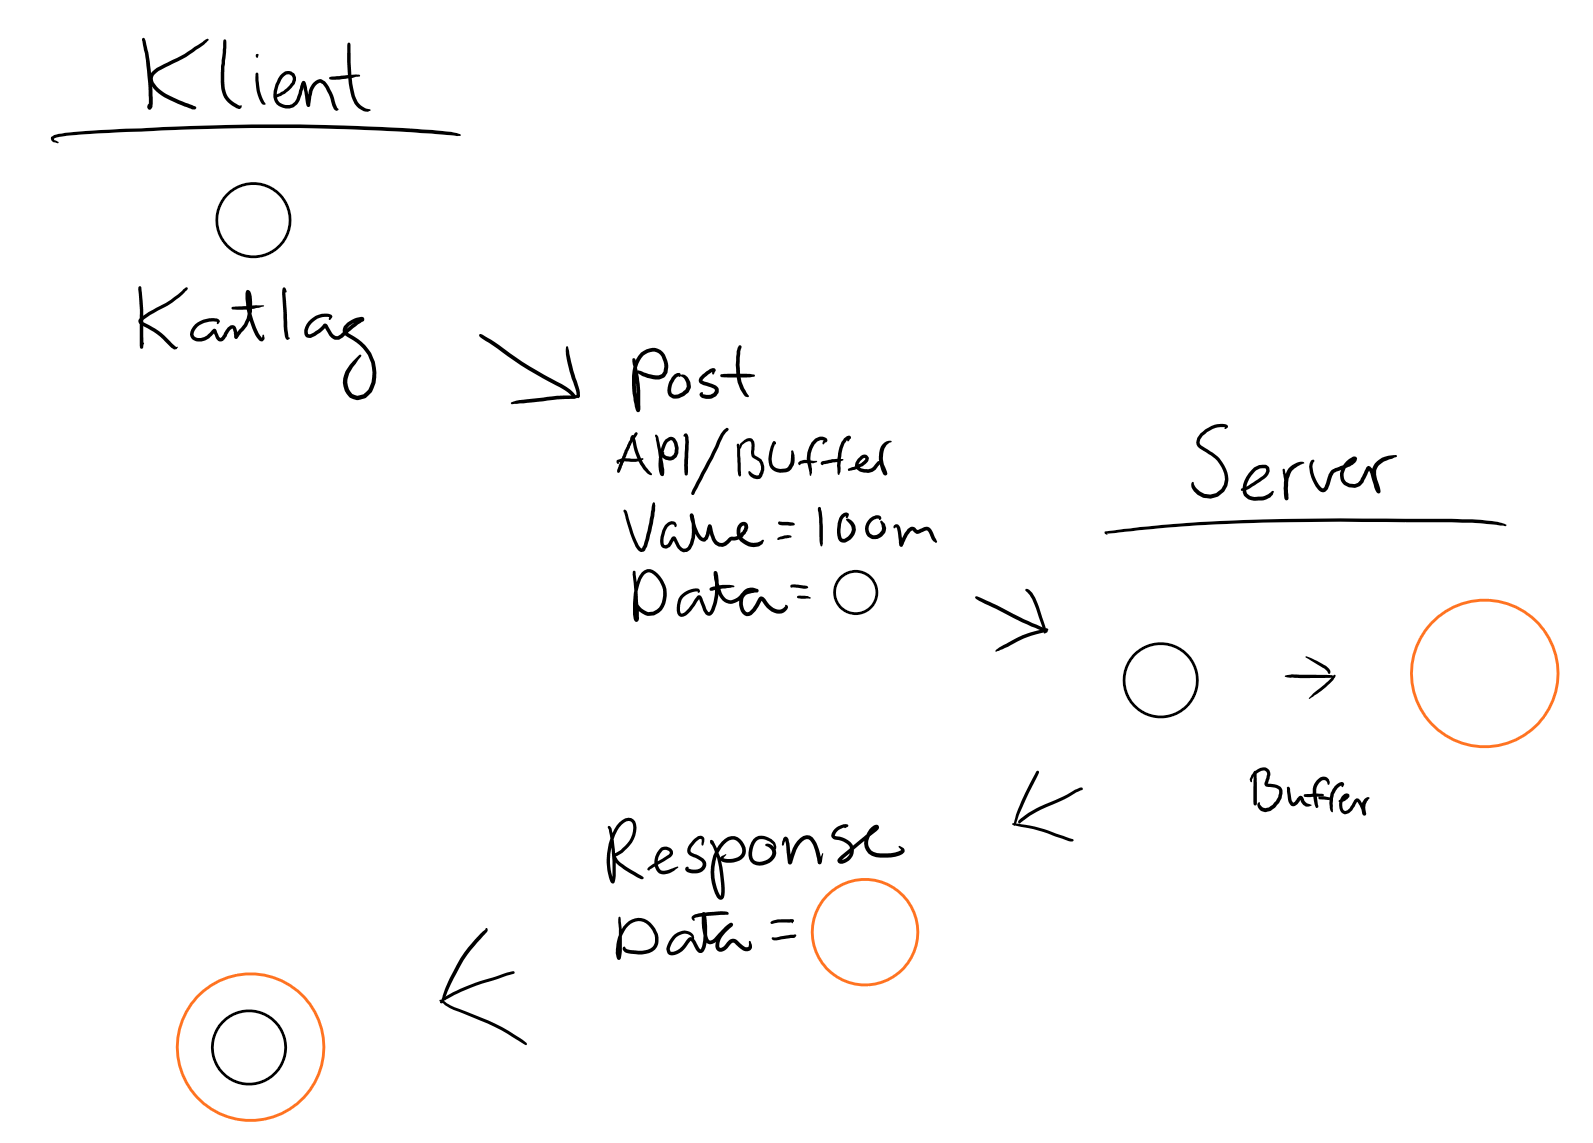 Klient
Kartlag
Post
API/Buffer
Value = 100m
Data =
Server
Buffer
Response
Data =